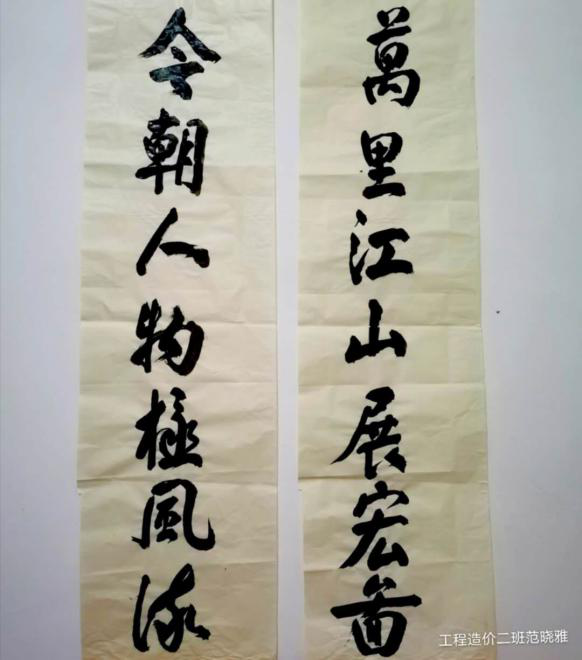 萬里江山展宏圖
今朝人物極風流
工程造价二班范晓雅